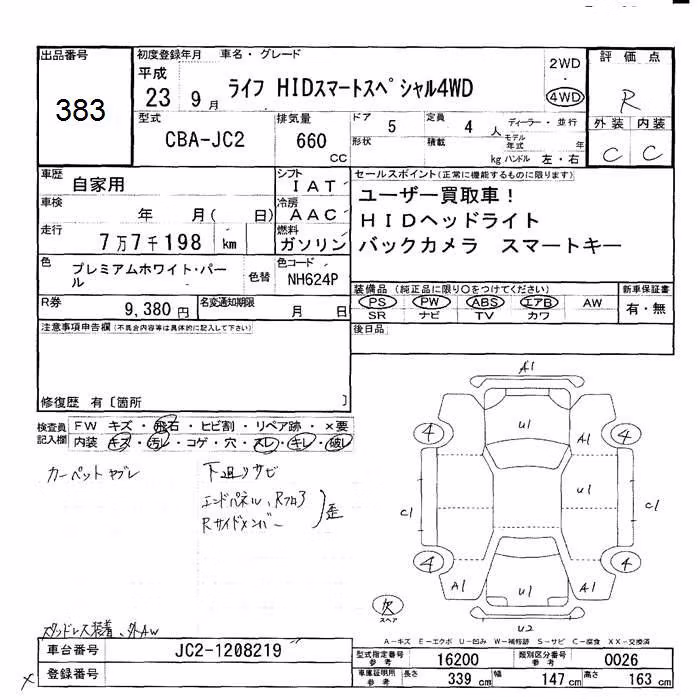 出品番号
383
初度登録年月 車名・グレード
平成
23 9月 ライフ HIDスマートスペシャル4WD
2WD
4WD
評価点
R
外装 内装
C C
型式
CBA-JC2
排気量
660
CC
ドア 5 定員 4人 ディーラー・並行
形状 積載 kg モデル年式 年
ハンドル 左・右
車歴
自家用
シフト
IAT
車検
年 月( 日)
冷房
AAC
走行
7万7千198 km
燃料
ガソリン
色
プレミアムホワイト・パール
色替
色コード
NH624P
R券
9,380円
名変通知期限
月 日
セールスポイント(正常に機能するものに限ります)
ユーザー買取車!
HIDヘッドライト
バックカメラ スマートキー
装備品(純正品に限り○をつけてください)
PS PW ABS エアB AW
SR ナビ TV カワ
新車保証書
有・無
後日品
注意事項申告欄(不具合内容等は具体的に記入して下さい)
修復歴 有〔箇所 〕
検査員記入欄
FW キズ・飛石・ヒビ割・リペア跡・×要
内装 キズ・汚レ・コゲ・穴・スレ・キレ・破レ
カーペットヤブレ
下廻りサビ
エンドパネル、Rフロア
Rサイドメンバー
歪
スタッドレス装着、外AW
A1
U1
A1
4 4
C1
U1
C1
4 4
A1
U1
A1
欠
スペア
U2
A-キズ E-エクボ U-凹み W-補修跡 S-サビ C-腐食 XX-交換済
車台番号
JC2-1208219
登録番号
型式指定番号 参考 16200 類別区分番号 参考 0026
車庫証明用 参考 長さ 339 cm 幅 147 cm 高さ 163 cm
×